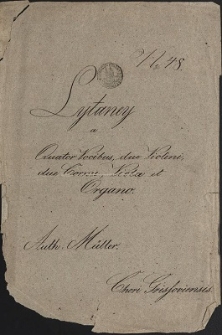 Lytaney
a
Quatuor Vocibus, duo Violini,
duo Corni, Viola et
Organo.
Auth. Müller.
Chori